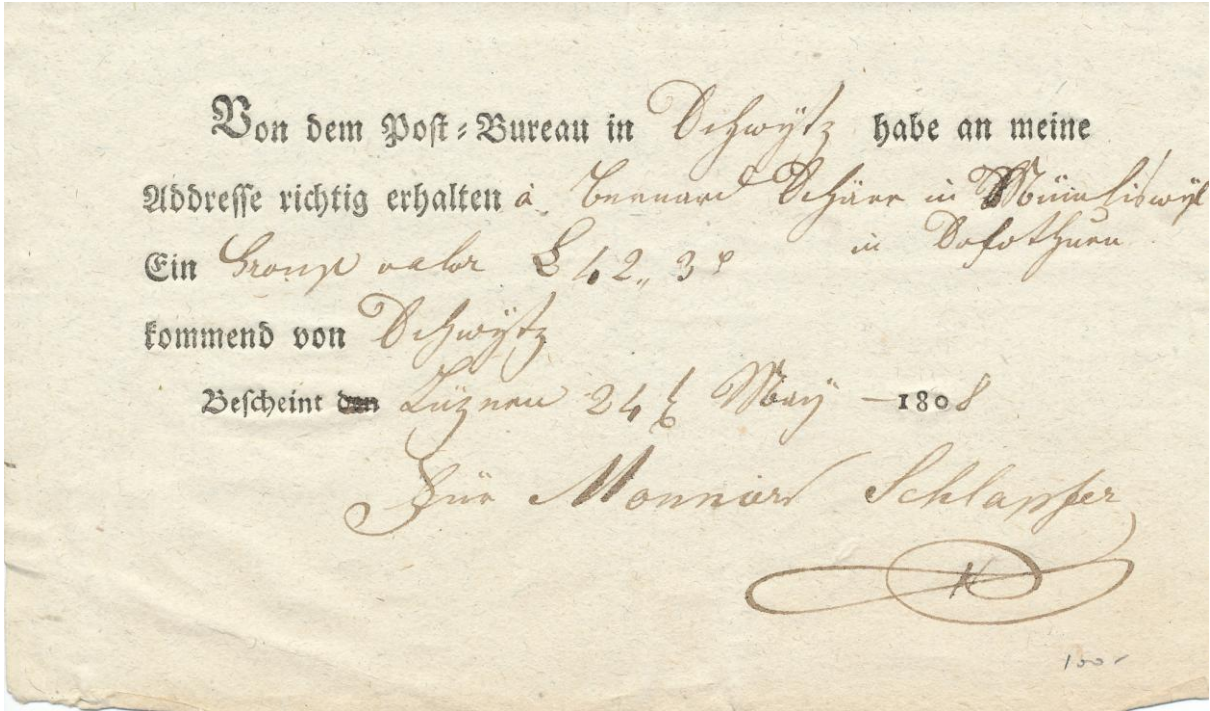 Von dem Post-Bureau in Schwÿtz habe an meine
Addresse richtig erhalten à Bernard Schärr in Mümliswÿl
in Solothurn
Ein Group valor L 42,, 3
kommend von Schwÿtz
Bescheint den Luzern 24 Maÿ 1808
Für Monnier Schlapfer
100-